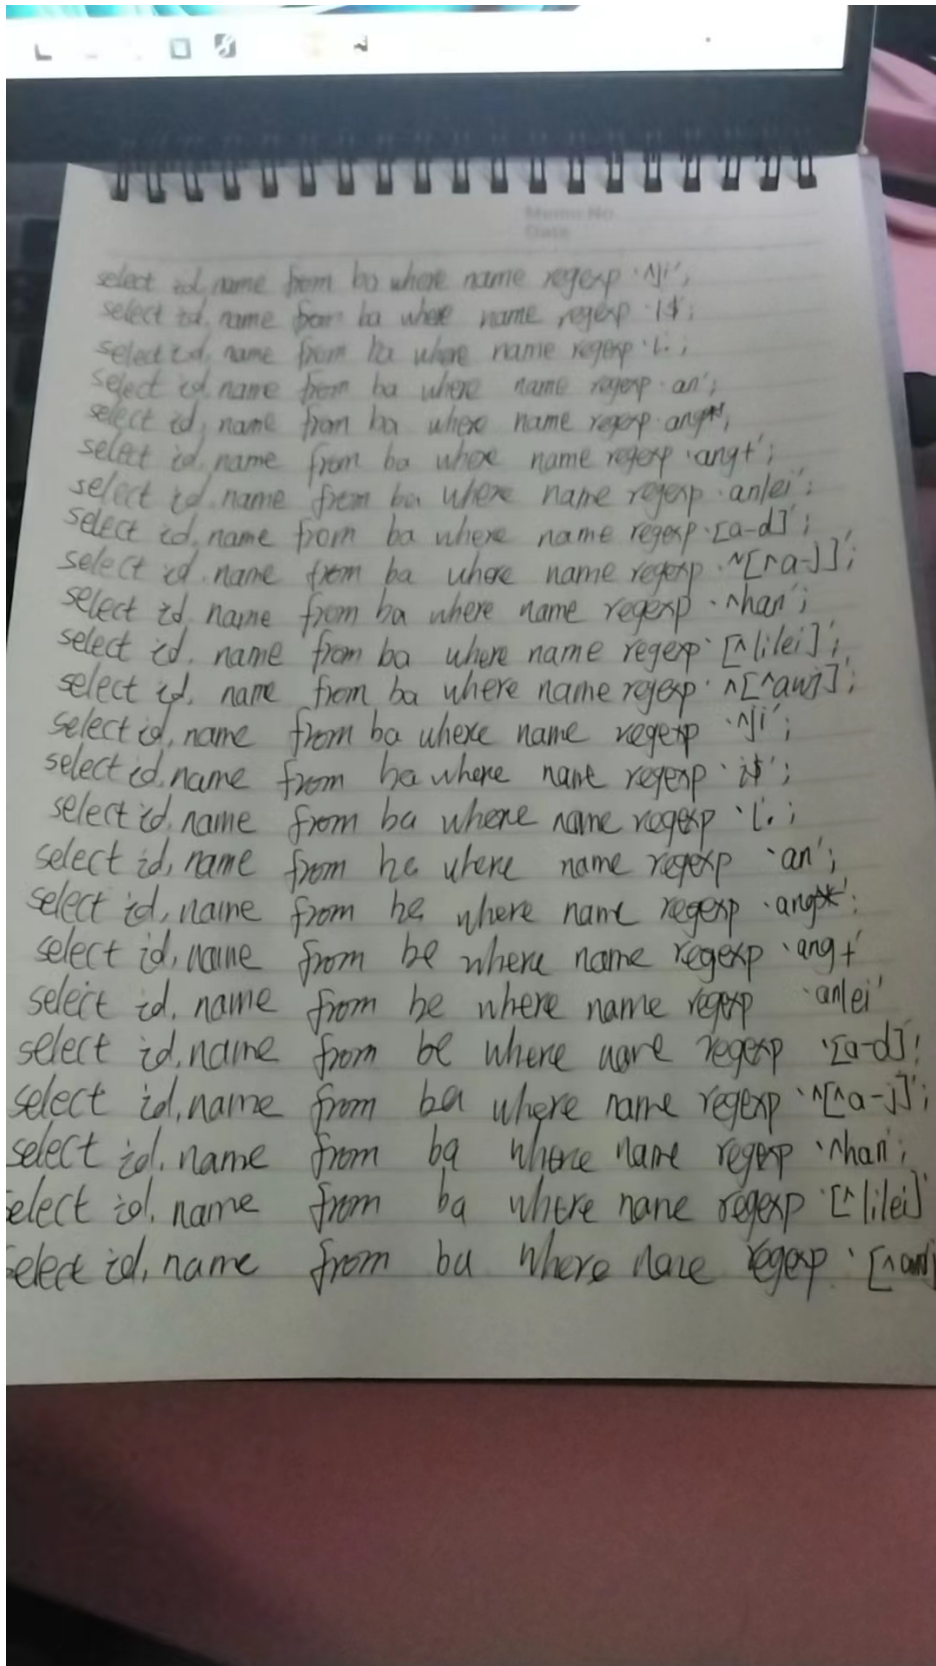 Memo No.
Date
select id, name from ba where name regexp '^ji';
select id, name from ba where name regexp 'i$';
select id, name from ba where name regexp 'l.;
select id, name from ba where name regexp 'an';
select id, name from ba where name regexp 'ang*';
select id, name from ba where name regexp 'ang+';
select id, name from ba where name regexp 'an|ei';
select id, name from ba where name regexp '[a-d]';
select id, name from ba where name regexp '^[^a-j]';
select id, name from ba where name regexp '^han';
select id, name from ba where name regexp '[^lilei]';
select id, name from ba where name regexp '^[^awj]';
select id, name from ba where name regexp '^ji';
select id, name from ba where name regexp 'i$';
select id, name from ba where name regexp 'l.;
select id, name from be where name regexp 'an';
select id, name from be where name regexp 'ang*';
select id, name from be where name regexp 'ang+'
select id, name from be where name regexp 'an|ei'
select id, name from be where name regexp '[a-d]';
select id, name from ba where name regexp '^[^a-j]';
select id, name from ba where name regexp '^han;
select id, name from ba where name regexp '[^lilei]'
select id, name from ba where name regexp '[^awj]